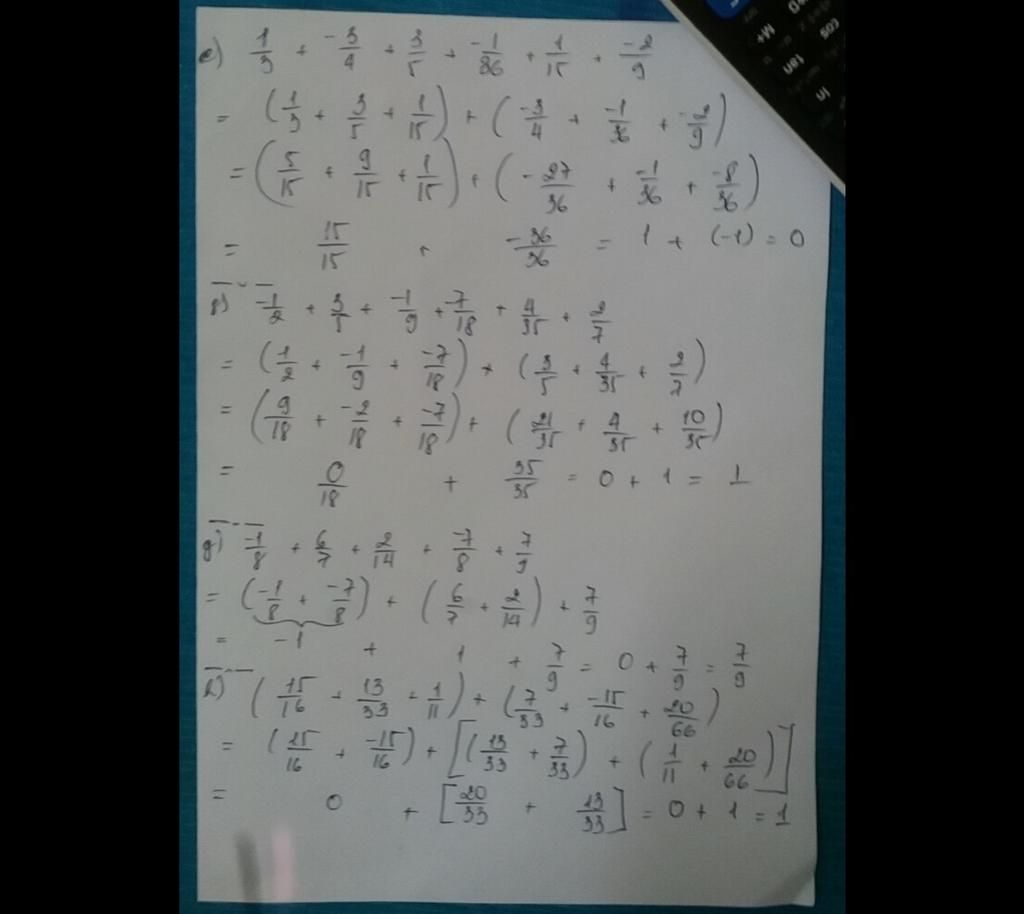 e) 1/3 + -3/4 + 3/5 + -1/36 + 1/15 + -2/9
= (1/3 + 3/5 + 1/15) + (-3/4 + -1/36 + -2/9)
= (5/15 + 9/15 + 1/15) + (-27/36 + -1/36 + -8/36)
= 15/15 + -36/36 = 1 + (-1) = 0
-1/2 + 3/5 + -1/9 + -7/18 + 4/35 + 2/7
= (1/2 + -1/9 + -7/18) + (3/5 + 4/35 + 2/7)
= (9/18 + -2/18 + -7/18) + (21/35 + 4/35 + 10/35)
= 0/18 + 35/35 = 0 + 1 = 1
g) -1/8 + 6/7 + 2/14 + -7/8 + 7/9
= (-1/8 + -7/8) + (6/7 + 2/14) + 7/9
= -1 + 1 + 7/9 = 0 + 7/9 = 7/9
h) (15/16 + 13/33 + 1/11) + (7/33 + -15/16 + 20/66)
= (15/16 + -15/16) + [(13/33 + 7/33) + (1/11 + 20/66)]
= 0 + [20/33 + 13/33] = 0 + 1 = 1
M+
cos
tan
ln